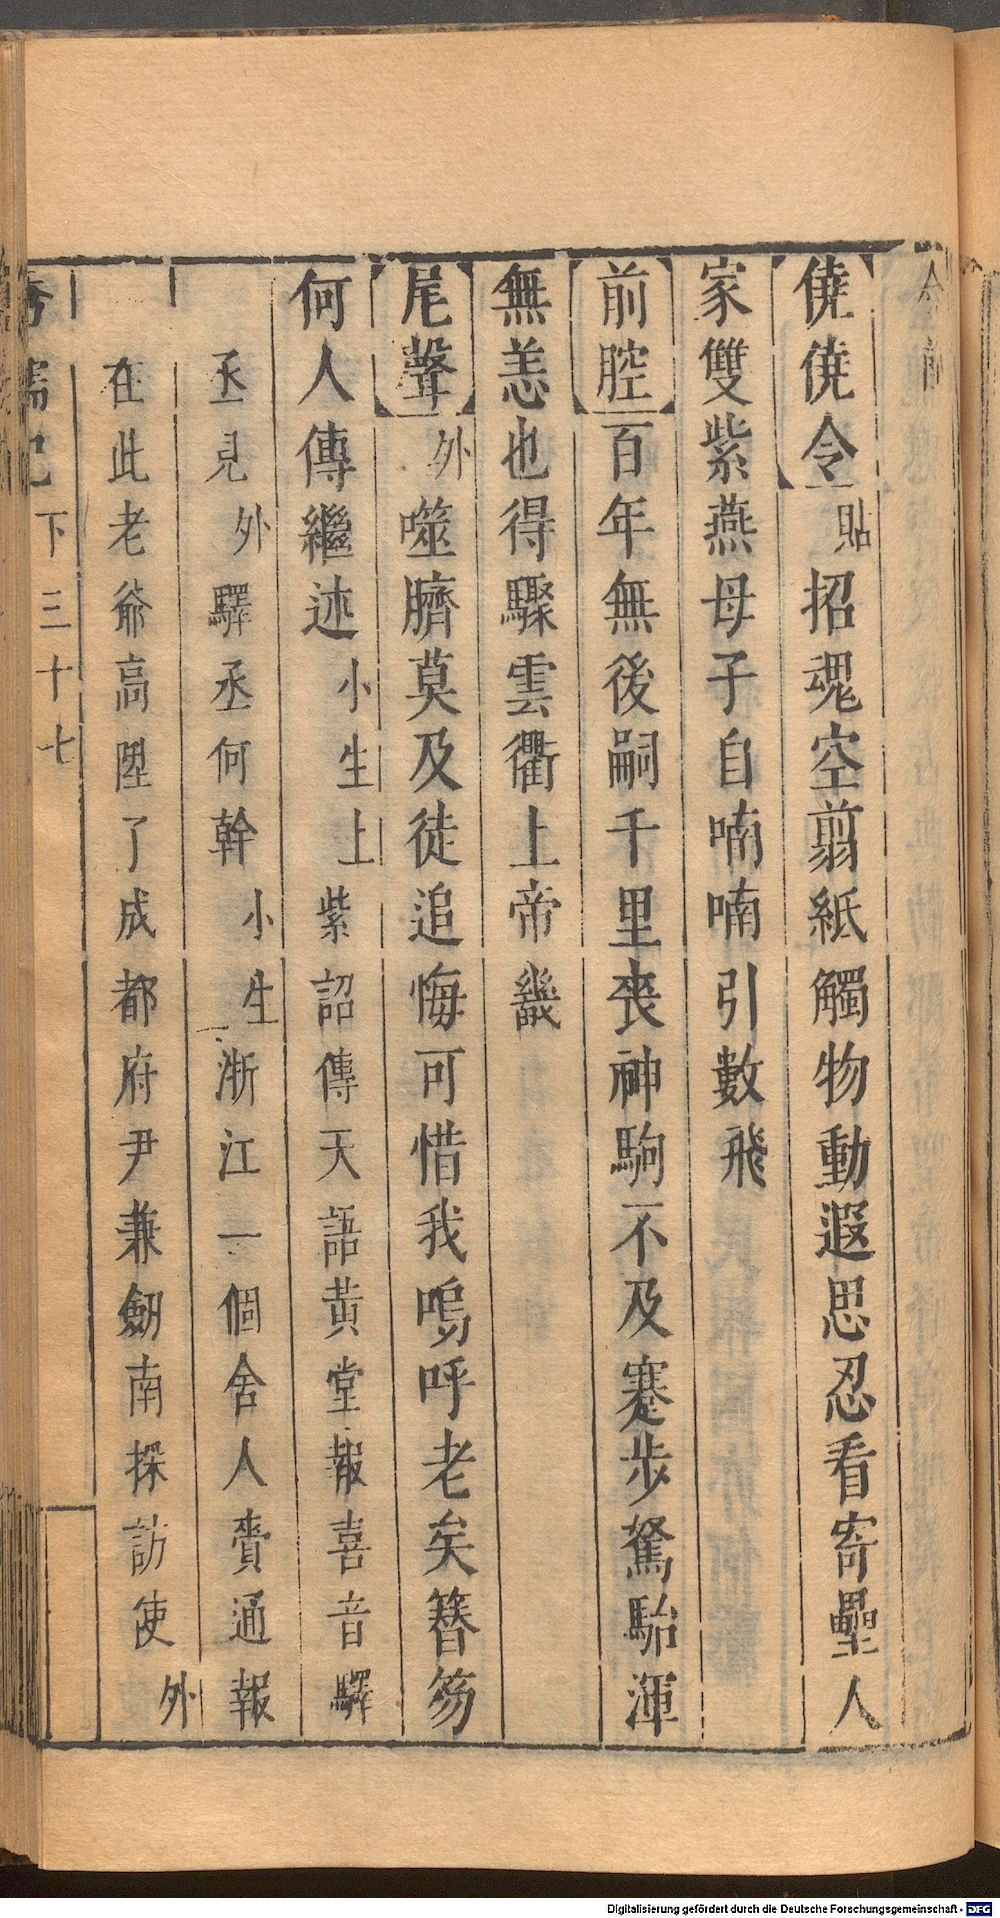 僥僥令貼招魂空剪紙觸物動遐思忍看寄壘人
家雙紫燕母子自喃喃引數飛
前腔百年無後嗣千里喪神駒不及蹇步駑駘渾
無恙也得驟雲衢上帝畿
尾聲外噬臍莫及徒追悔可惜我嗚呼老矣簪笏
何人傳繼述小生上紫詔傳天語黃堂報喜音驛
丞見外驛丞何幹小生浙江一個舍人賫通報
在此老爺高陞了成都府尹兼劒南採訪使外
下三十七
Digitalisierung gefördert durch die Deutsche Forschungsgemeinschaft - DFG